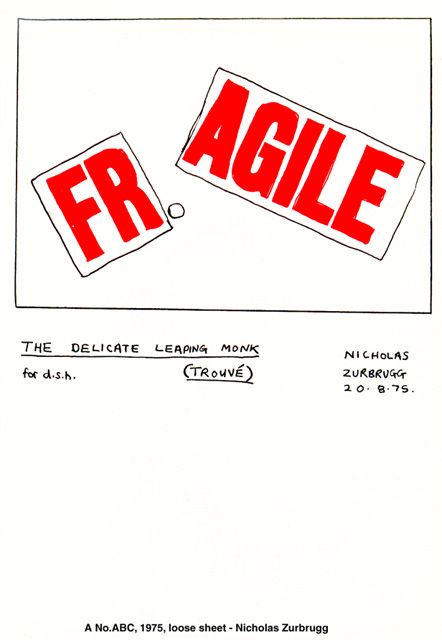 FR. AGILE
THE DELICATE LEAPING MONK
for d.s.h. (TROUVÉ)
NICHOLAS
ZURBRUGG
20.8.75.
A No.ABC, 1975, loose sheet - Nicholas Zurbrugg